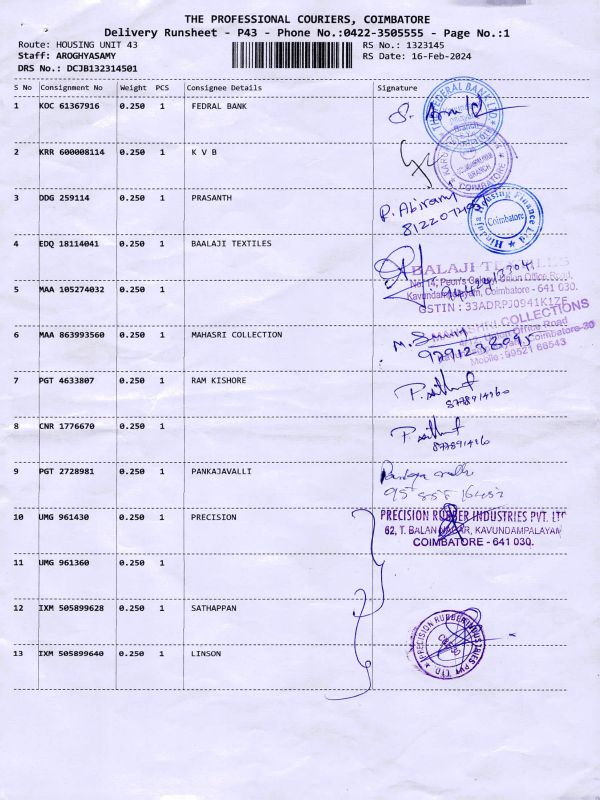 THE PROFESSIONAL COURIERS, COIMBATORE
Delivery Runsheet - P43 - Phone No.:0422-3505555 - Page No.:1
Route: HOUSING UNIT 43 RS No.: 1323145
Staff: AROGHYASAMY RS Date: 16-Feb-2024
DRS No.: DCJB132314501
S No Consignment No Weight PCS Consignee Details Signature
1 KOC 61367916 0.250 1 FEDRAL BANK
THE FEDERAL BANK LTD.
2 KRR 600008114 0.250 1 K V B
BRANCH
COIMBATORE
3 DDG 259114 0.250 1 PRASANTH
P. Abirami
Hinduja Housing Finance Ltd
Coimbatore
4 EDQ 18114041 0.250 1 BAALAJI TEXTILES
BALAJI TEXTILES
5 MAA 105274032 0.250 1
Kavundampalayam, Coimbatore - 641 030.
GSTIN : 33ADRPJ0941K1ZF
6 MAA 863993560 0.250 1 MAHASRI COLLECTION
COLLECTIONS
Office Road
Coimbatore-30
Mobile: 99521 68543
7 PGT 4633807 0.250 1 RAM KISHORE
8778914160
8 CNR 1776670 0.250 1
9 PGT 2728981 0.250 1 PANKAJAVALLI
10 UMG 961430 0.250 1 PRECISION
PRECISION RUBBER INDUSTRIES PVT. LTD
62, T. BALAN NAGAR, KAVUNDAMPALAYAM
COIMBATORE - 641 030.
11 UMG 961360 0.250 1
12 IXM 505899628 0.250 1 SATHAPPAN
PRECISION RUBBER INDUSTRIES PVT LTD
13 IXM 505899640 0.250 1 LINSON